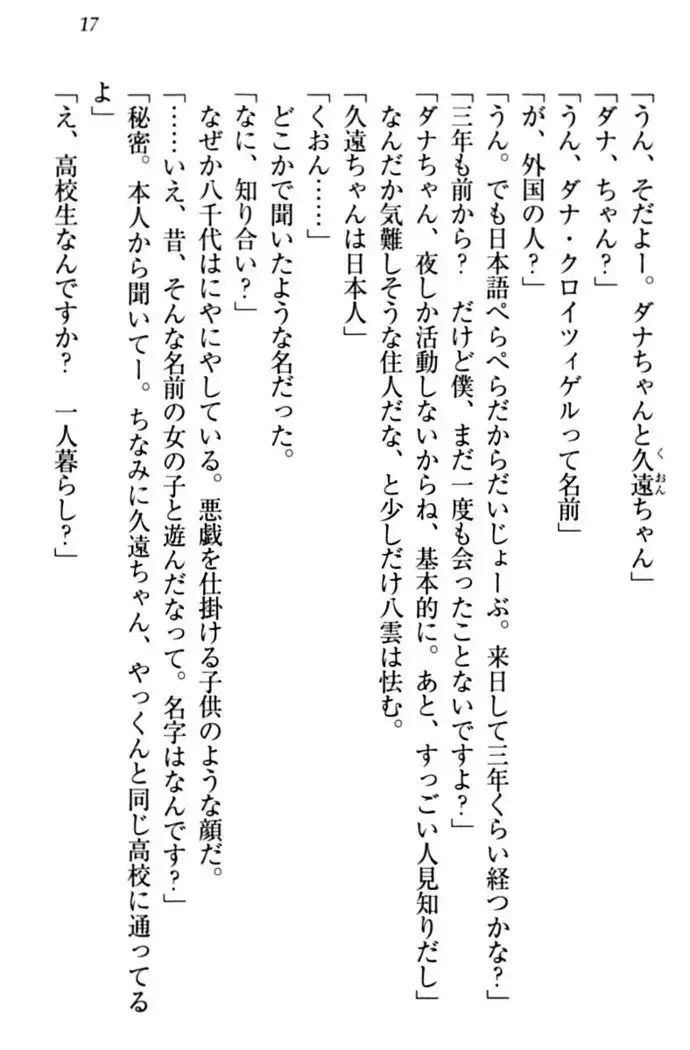 17
「うん、そだよー。ダナちゃんと久遠ちゃん」
くおん
「ダナ、ちゃん?」
「うん、ダナ・クロイツィゲルって名前」
「が、外国の人?」
「うん。でも日本語ぺらぺらだからだいじょーぶ。来日して三年くらい経つかな?」
「三年も前から? だけど僕、まだ一度も会ったことないですよ?」
「ダナちゃん、夜しか活動しないからね、基本的に。あと、すっごい人見知りだし」
なんだか気難しそうな住人だな、と少しだけ八雲は怯む。
「久遠ちゃんは日本人」
「くおん……」
どこかで聞いたような名だった。
「なに、知り合い?」
なぜか八千代はにやにやしている。悪戯を仕掛ける子供のような顔だ。
「……いえ、昔、そんな名前の女の子と遊んだなって。名字はなんです?」
「秘密。本人から聞いてー。ちなみに久遠ちゃん、やっくんと同じ高校に通ってる
よ」
「え、高校生なんですか? 一人暮らし?」